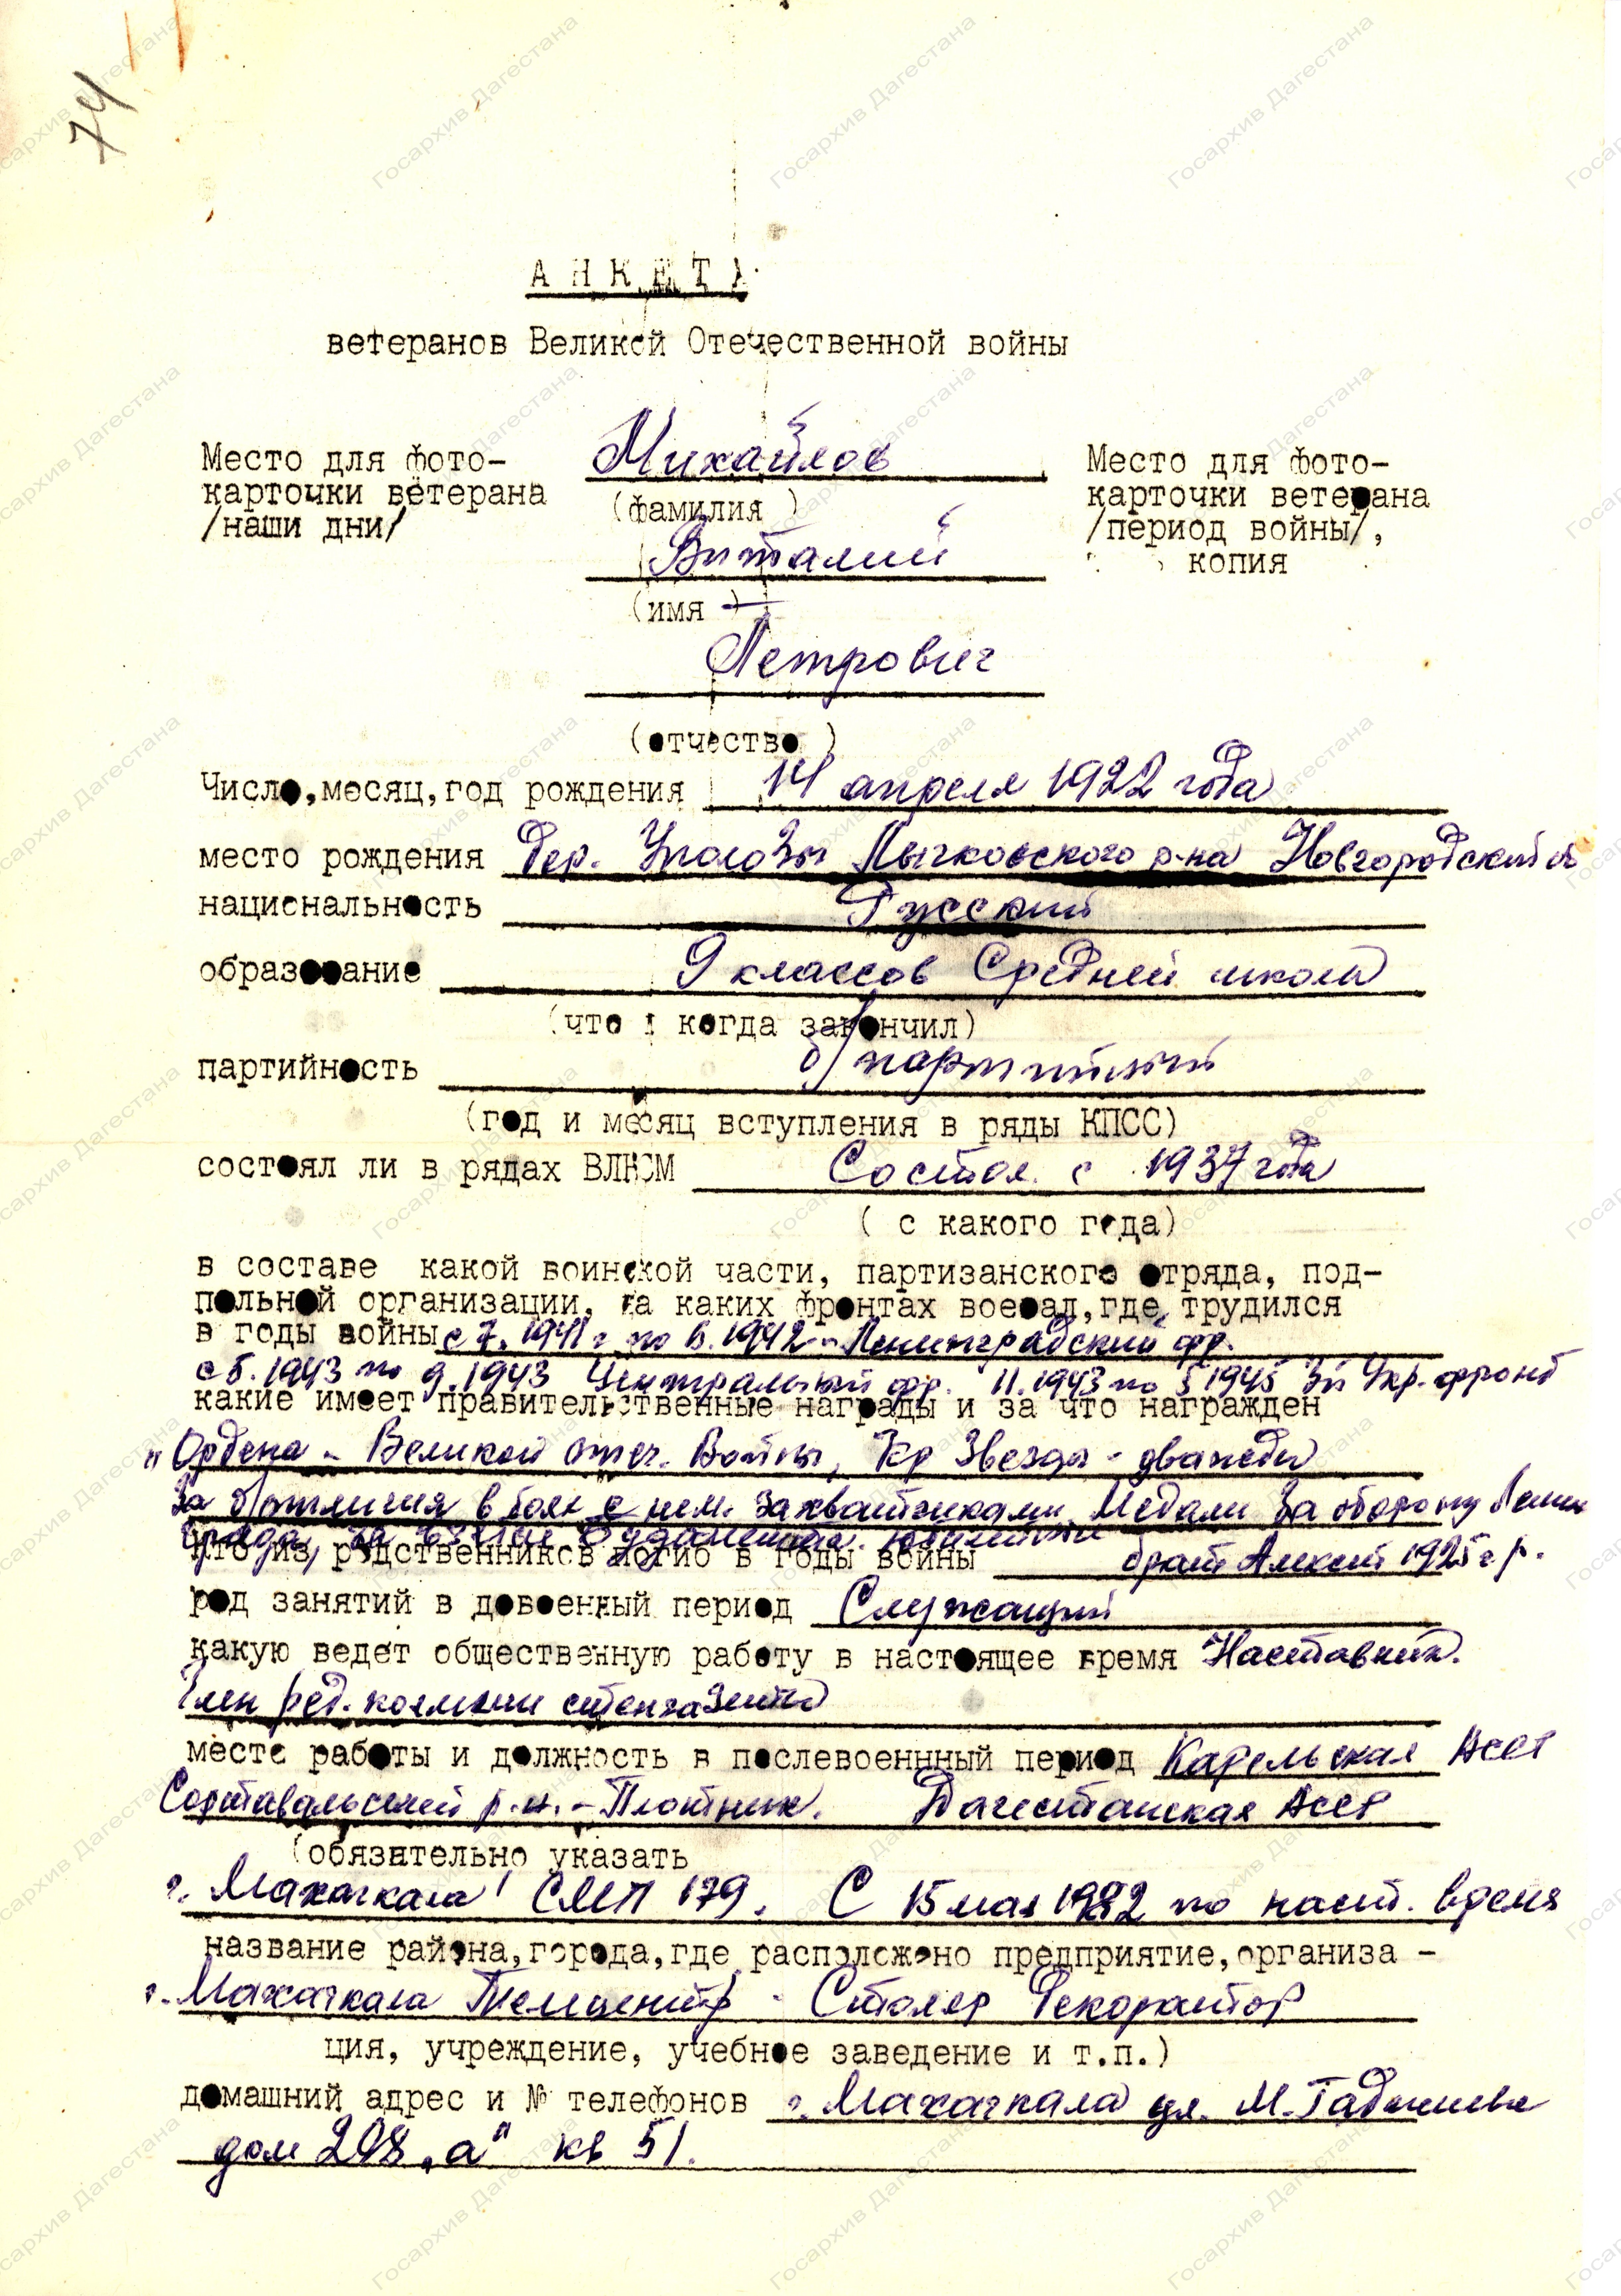 74
АНКЕТА
ветеранов Великой Отечественной войны
Место для фото-
карточки ветерана
/наши дни/
Михайлов
(фамилия)
Виталий
(имя)
Петрович
(отчество)
Место для фото-
карточки ветерана
/период войны/,
копия
Число, месяц, год рождения 14 апреля 1922 года
место рождения дер. Лычковского р-на Новгородский
национальность Русский
образование 9 классов Средней школы
(что и когда закончил)
партийность б/партийный
(год и месяц вступления в ряды КПСС)
состоял ли в рядах ВЛКСМ Состоял с 1937 года
( с какого года)
в составе какой воинской части, партизанского отряда, под-
польной организации, на каких фронтах воевал, где трудился
в годы войны с 7. 1941 г по 6. 1942 - Ленинградский фр.
с 5. 1943 по 9. 1943 Центральный фр. 11. 1943 по 5 1945 3й Укр. фронт
какие имеет правительственные награды и за что награжден
"Ордена - Великой отеч. Войны, Кр Звезды - дважды
За отличия в боях с нем. захватчиками. Медали За оборону Ленин
града, за взятие Будапешта. юбилейные
кто из родственников погиб в годы войны брат Алексей 1925 г р.
род занятий в довоенный период Служащий
какую ведет общественную работу в настоящее время Наставник.
Член ред. коллегии стенгазеты
место работы и должность в послевоеннный период Карельская АССР
Сортавальский р-н. - Плотник. Дагестанская АССР
(обязательно указать
г. Махачкала СМП 179. С 15 мая 1982 по наст. время
название района, города, где расположено предприятие, организа -
г. Махачкала Телецентр - Столяр Декоратор
ция, учреждение, учебное заведение и т.п.)
домашний адрес и № телефонов г. Махачкала ул. М. Гаджиева
дом 208 „а" кв 51.
Госархив Дагестана